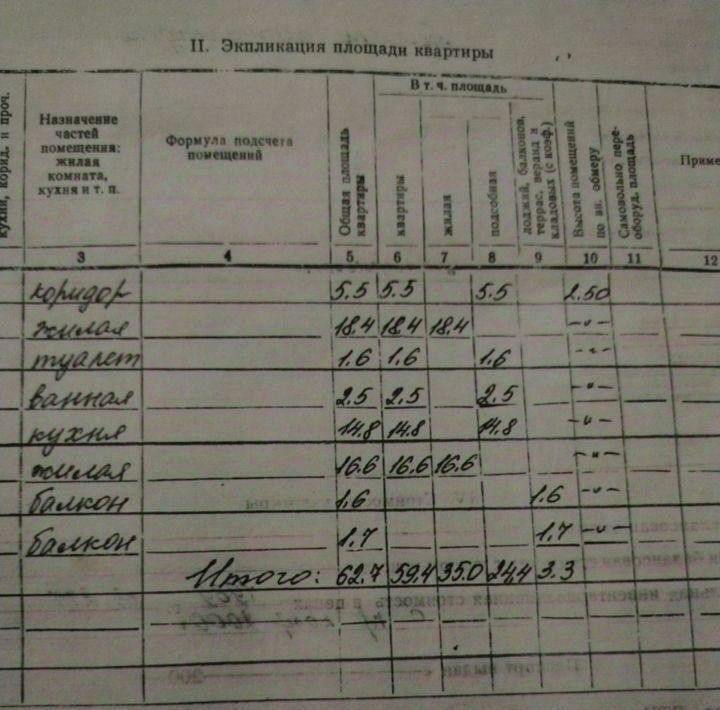 II. Экпликация площади квартиры
В т. ч. площадь
кухни, корид. и проч.
Назначение
частей
помещения:
жилая
комната,
кухня и т. п.
Формула подсчета
помещений
Общая площадь
квартиры
квартиры
жилая
подсобная
лоджий, балконов,
террас, веранд и
кладовых (с коэф.)
Высота помещений
по вн. обмеру
Самовольно пере-
оборуд. площадь
Приме
3 4 5 6 7 8 9 10 11 12
коридор 5.5 5.5 5.5 2.50
жилая 18.4 18.4 18.4 -"-
туалет 1.6 1.6 1.6 -"-
ванная 2.5 2.5 2.5 -"-
кухня 14.8 14.8 14.8 -"-
жилая 16.6 16.6 16.6 -"-
балкон 1.6 1.6 -"-
балкон 1.7 1.7 -"-
Итого: 62.7 59.4 35.0 24,4 3.3
стоимость в ценах
Паспорт выдан
200